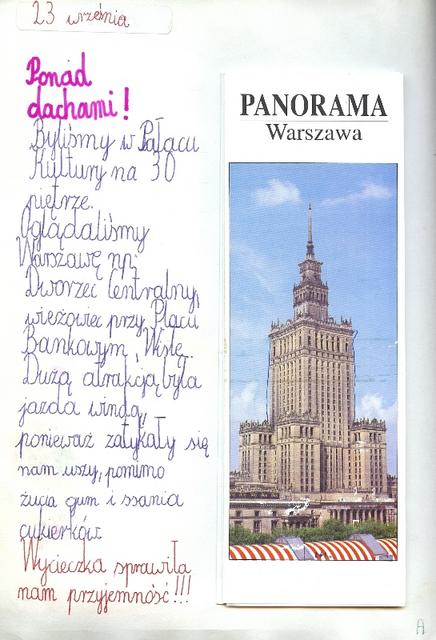 23 września
Ponad
dachami!
Byliśmy w Pałacu
Kultury na 30
piętrze.
Oglądaliśmy
Warszawę np:
Dworzec Centralny,
wieżowiec przy Placu
Bankowym, Wisłę.
Dużą atrakcją była
jazda windą,
ponieważ zatykały się
nam uszy, pomimo
żucia gum i ssania
cukierków.
Wycieczka sprawiła
nam przyjemność!!!
PANORAMA
Warszawa
A